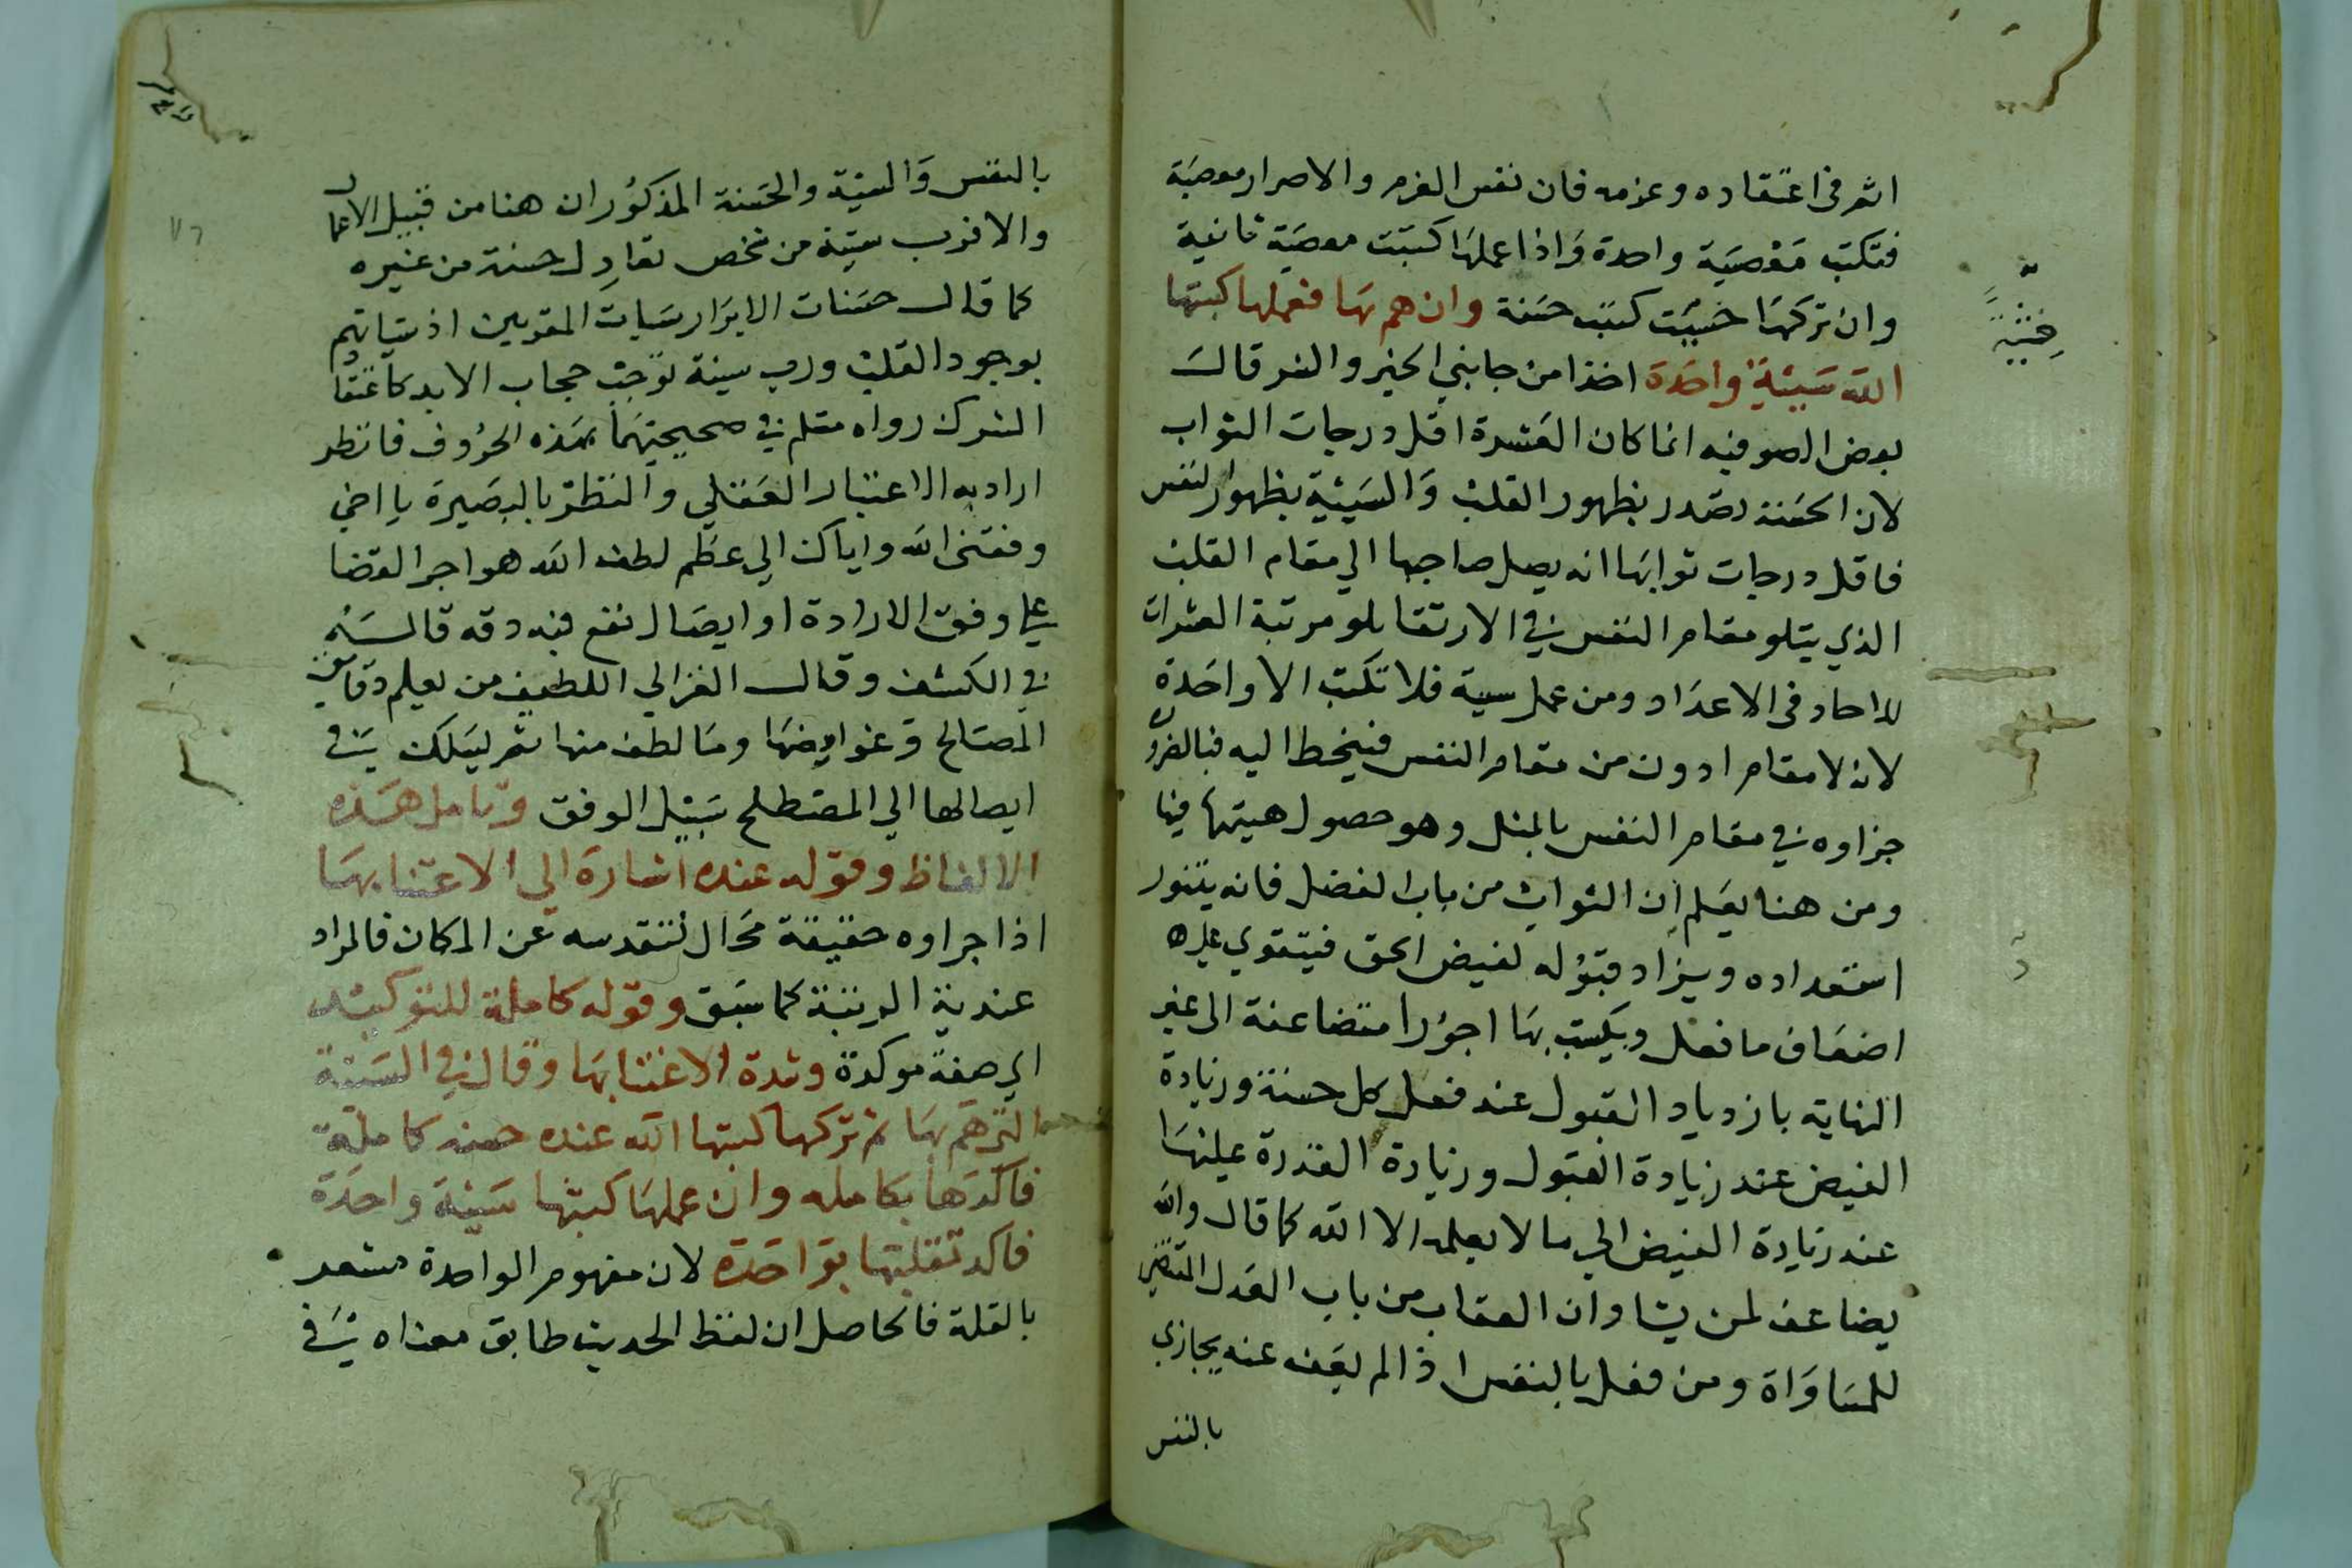 اثم فى اعتقاده وعزمه فان نفس العزم والاصرار معصية
فتكتب معصية واحدة واذا عملها كتبت معصية ثانية
وان تركها خشيت كتبت حسنة وان هم بها فعملها كتبها
الله سيئة واحدة اخذا من جانبي الخير والشر قال
بعض الصوفيه انما كان العشرة اقل درجات الثواب
لان الحسنة تصدر بظهور القلب والسيئة بظهور النفس
فاقل درجات ثوابها انه يصل صاحبها الي مقام القلب
الذي يتلو مقام النفس في الارتقا تلو مرتبة العشرات
للاحاد فى الاعداد ومن عمل سية فلا تكتب الا واحدة
لان لا مقام ادون من مقام النفس فينحط اليه فبالضرورة
جزاوه في مقام النفس بالمثل وهو حصول هيئتها فيها
ومن هنا يعلم ان الثواب من باب الفضل فانه يتنور
استعداده ويزاد قبوله لفيض الحق فيتقوي عليه
اضعاف ما فعل ويكتب بها اجورا متضاعفة الى غير
النهاية بازدياد القبول عند فعل كل حسنة وزيادة
الفيض عند زيادة القبول وزيادة القدرة عليها
عند زيادة الفيض الي ما لا يعلمه الا الله كما قال والله
يضاعف لمن يشا وان العقاب من باب العدل المقتضي
للمساواة ومن فعل بالنفس اذا لم يعف عنه يجازي
بالنفس
بالنفس والسيئة والحسنة المذكوران هنا من قبيل الاعمال
والاقرب سيئة من شخص تعادل حسنة من غيره
كما قال حسنات الابرار سيات المقربين اذ سياتهم
بوجود القلب ورب سيئة توجب حجاب الابد كاعتقاد
الشرك رواه مسلم في صحيحيهما بهذه الحروف فانظر
اراد به الاعتبار العقلي والنظر بالبصيرة يا اخي
وفقنى الله واياك الي عظم لطف الله هو اجرا القضا
علي وفق الارادة او ايصال نفع فيه دقه قاله
في الكشف وقال الغزالي اللطيف من يعلم دقايق
المصالح وغوامضها وما لطف منها ثم ليسلك في
ايصالها الي المصطلح سبيل الرفق وتامل هذه
الالفاظ وقوله عنده اشارة الي الاعتنا بها
اذا جراوه حقيقة محال لتقدسه عن المكان فالمراد
عندية الرتبة كما سبق وقوله كاملة للتوكيد
اي صفة موكدة وشدة الاعتنا بها وقال في السيئة
التي هم بها ثم تركها كتبها الله عنده حسنه كاملة
فاكدها بكامله وان عملها كتبها سيئة واحدة
فاكد تقليلها بواحدة لان مفهوم الواحدة مشعر
بالقلة فالحاصل ان لفظ الحديث طابق معناه في